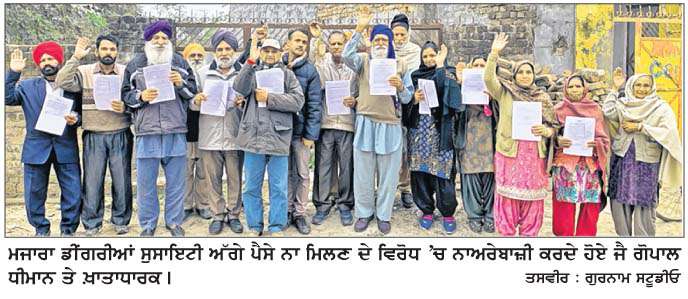 ਮਜਾਰਾ ਡੀਂਗਰੀਆਂ ਸੁਸਾਇਟੀ ਅੱਗੇ ਪੈਸੇ ਨਾ ਮਿਲਣ ਦੇ ਵਿਰੋਧ ’ਚ ਨਾਅਰੇਬਾਜ਼ੀ ਕਰਦੇ ਹੋਏ ਜੈ ਗੋਪਾਲ
ਧੀਮਾਨ ਤੇ ਖ਼ਾਤਾਧਾਰਕ। ਤਸਵੀਰ : ਗੁਰਨਾਮ ਸਟੂਡੀਓ